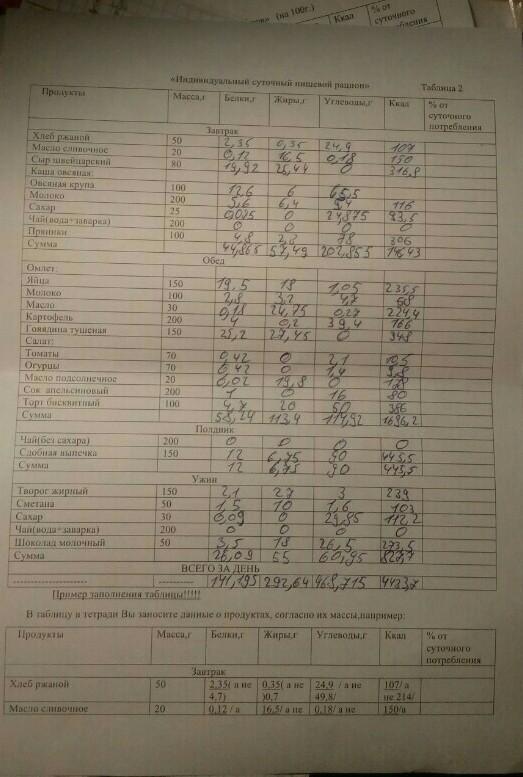 (на 100г.)
Ккал
% от
суточного
«Индивидуальный суточный пищевой рацион»
Таблица 2
Продукты Масса,г Белки,г Жиры,г Углеводы,г Ккал % от суточного потребления
Завтрак
Хлеб ржаной 50 2,35 0,35 24,9 107
Масло сливочное 20 0,12 16,5 0,18 150
Сыр швейцарский 80 19,92 25,44 0 316,8
Каша овсяная:
Овсяная крупа 100 12,6 6 65,5
Молоко 200 5,6 6,4 9,4 116
Сахар 25 0,025 0 24,875 93,5
Чай(вода+заварка) 200 0 0 0 0
Пряники 100 4,8 2,8 78 306
Сумма 44,865 57,49 202,855
Обед
Омлет:
Яйца 150 19,5 18 1,05 235,5
Молоко 100 2,8 3,2 4,7 58
Масло 30 0,18 24,75 0,27 224,4
Картофель 200 4 0,2 39,4 166
Говядина тушеная 150 25,2 27,45 0 348
Салат:
Томаты 70 0,42 0 2,1 10,5
Огурцы 70 0,42 0 1,4 9,8
Масло подсолнечное 20 0,02 19,8 0
Сок апельсиновый 200 1 0 16 80
Торт бисквитный 100 4,7 20 50 386
Сумма 58,24 113,4 114,92 1696,2
Полдник
Чай(без сахара) 200 0 0 0 0
Сдобная выпечка 150 12 6,75 90 445,5
Сумма 12 6,75 90 445,5
Ужин
Творог жирный 150 21 27 3 239
Сметана 50 1,5 10 1,6 103
Сахар 30 0,09 0 29,85 112,2
Чай(вода+заварка) 200 0 0 0 0
Шоколад молочный 50 3,5 18 26,5 273,5
Сумма 26,09 55 60,95 827,7
ВСЕГО ЗА ДЕНЬ
--------------------- ---------- 141,195 292,64 468,715 4413,7
Пример заполнения таблицы!!!!!
В таблицу в тетради Вы заносите данные о продуктах, согласно их массы,например:
Продукты Масса,г Белки,г Жиры,г Углеводы,г Ккал % от суточного потребления
Завтрак
Хлеб ржаной 50 2,35( а не 4,7) 0,35( а не )0,7 24,9 / а не 49,8/ 107/а не 214/
Масло сливочное 20 0,12 / а 16,5/ а не 0,18/ а не 150/а